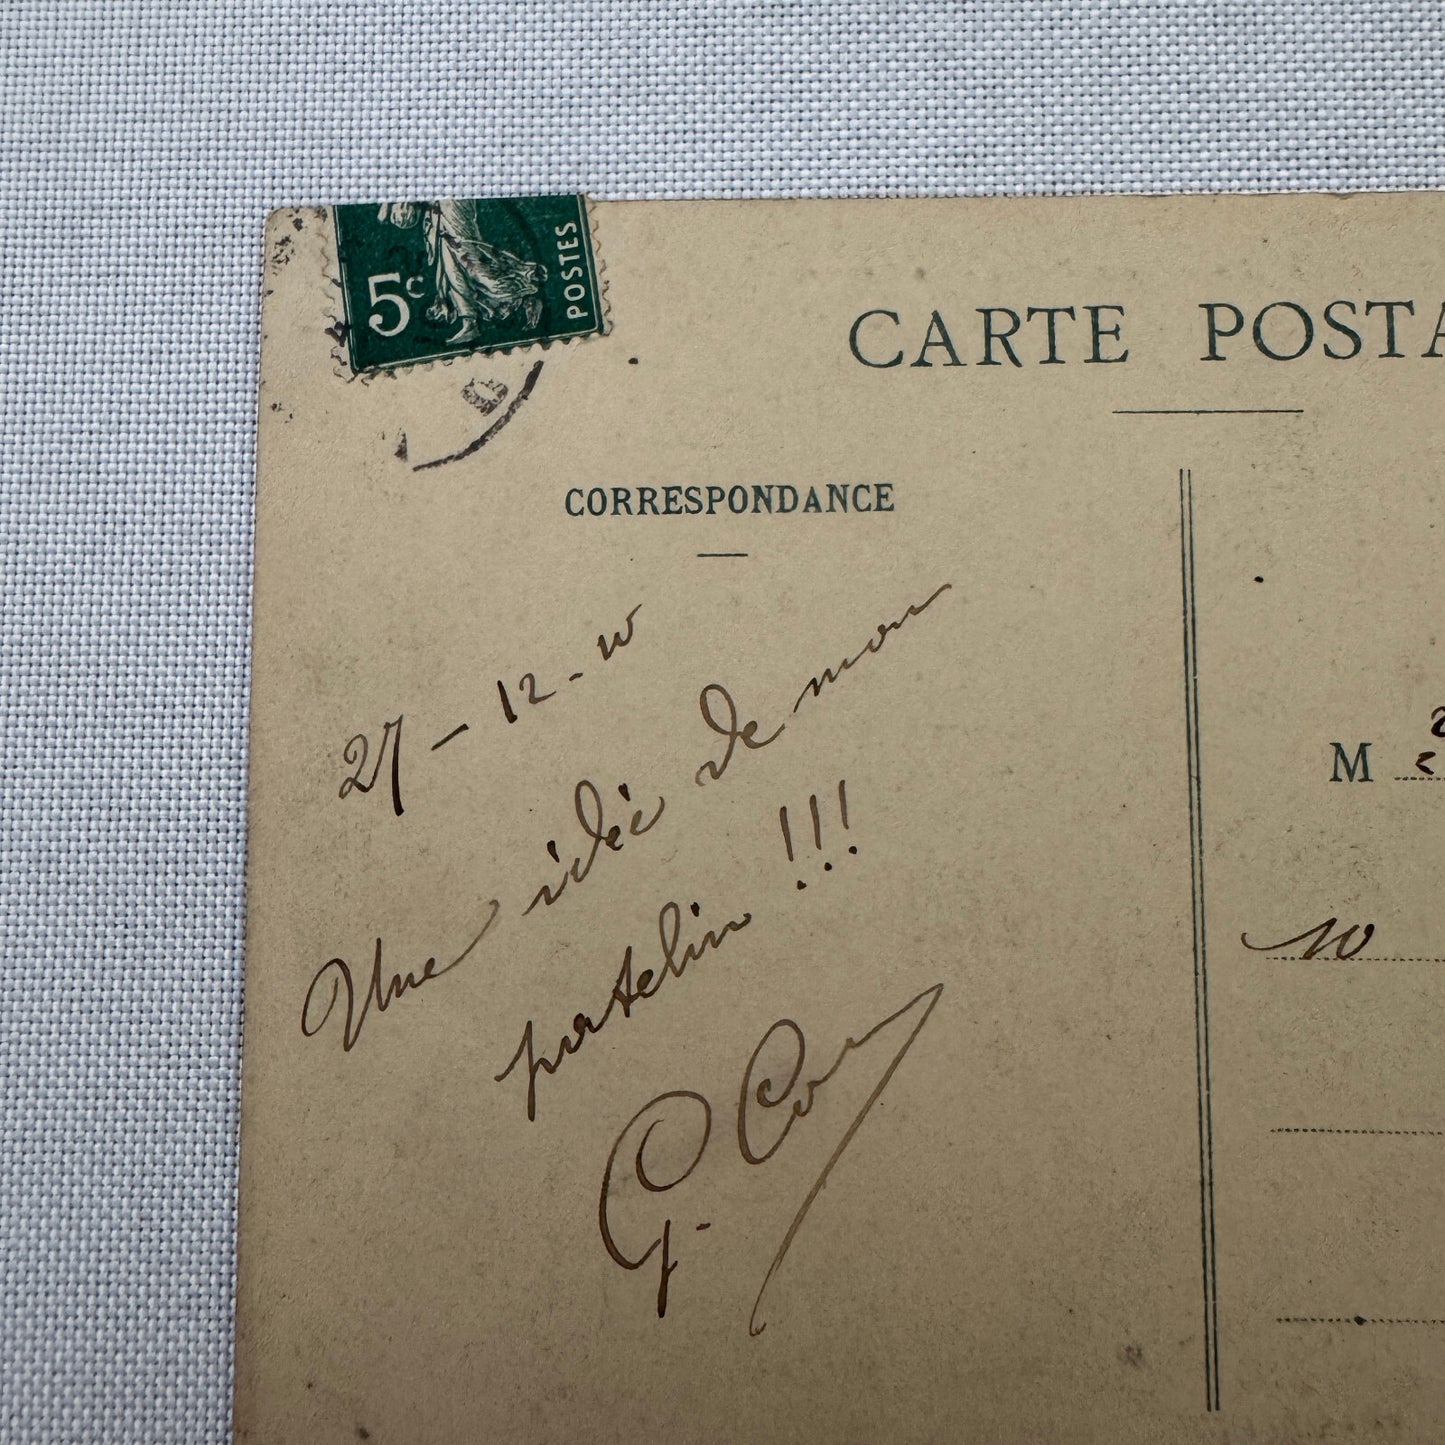 5c
POSTES
CARTE POSTA
CORRESPONDANCE
27 - 12 - 10
Une idée de mon
patelin !!!
M
10